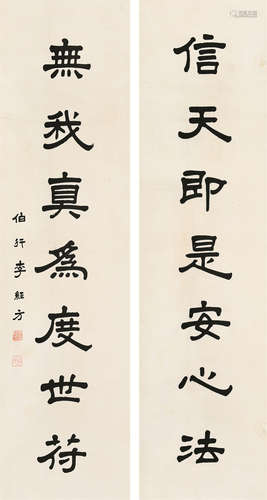 信天即是安心法
無我真為度世符
伯行李經方